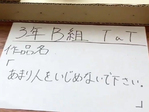 3年B組 TaT
作品名
「
あまり人をいじめないで下さい。